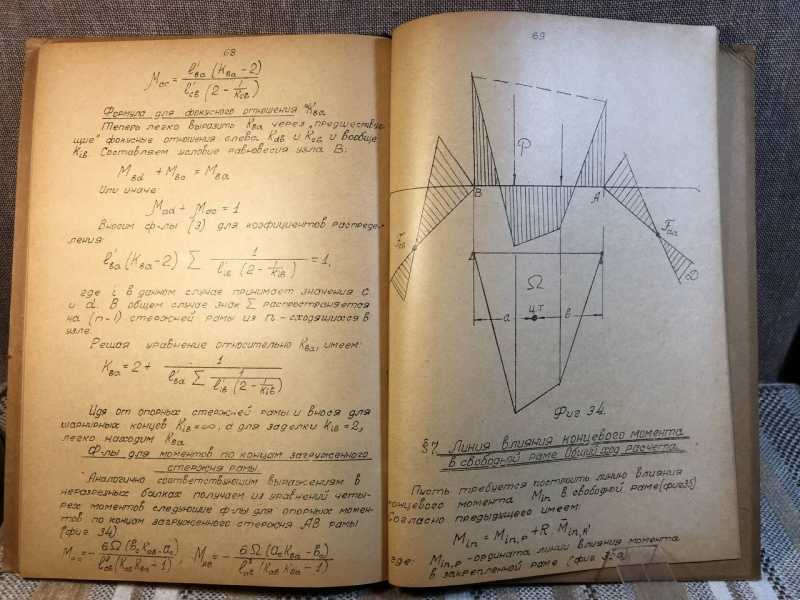 68
μac = l'ва (Kва - 2) / l'cв (2 - 1/Kcв)
Формула для фокусного отношения Kва
Теперь легко выразить Kва через „предшествую-
щие" фокусные отношения слева Kdв и Kcв и вообще
Kiв. Составляем условие равновесия узла В:
Mвd + Mвc = Mва
Или иначе
μad + μac = 1
Вносим ф-лы (3) для коэфициентов распреде-
ления
l'ва (Kва - 2) ∑ 1 / l'iв (2 - 1/Kiв) = 1,
где i в данном случае принимает значения c
и d. В общем случае знак ∑ распространяется
на (n-1) стержней рамы из n - сходящихся в
узле.
Решая уравнение относительно Kва, имеем:
Kва = 2 + 1 / l'ва ∑ 1 / l'iв (2 - 1/Kiв)
Идя от опорных стержней рамы и внося для
шарнирных концов Kiв = ∞, а для заделки Kiв = 2,
легко находим Kва
Ф-лы для моментов по концам загруженного
стержня рамы.
Аналогично соответствующим выражениям в
неразрезных балках получаем из уравнений четы-
рех моментов следующие ф-лы для опорных момен-
тов по концам загруженного стержня АВ рамы
(фиг 34)
69
P
B
A
D
Ω
a
ц.т
в
Фиг 34.
§7. Линия влияния концевого момента
в свободной раме Общий ход расчета.
Пусть требуется построить линию влияния
концевого момента Min в свободной раме (фиг35)
Согласно предыдущего имеем:
Min = Min,p + R · M̄in,R'
где: Min,p - ордината линии влияния момента
в закрепленной раме (фиг 35а)